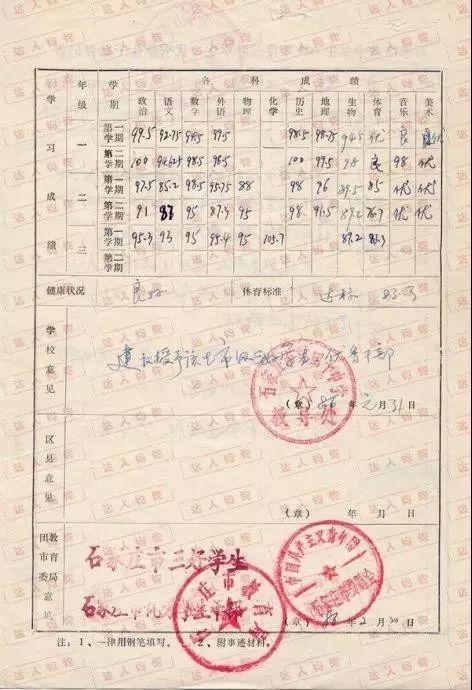 学习成绩 年级 学期 各科成绩
政治 语文 数学 外语 物理 化学 历史 地理 生物 体育 音乐 美术
一 第一学期 99.5 92.75 99.5 98.5 98.75 94.5 优 良
第二学期 100 94.25 98.5 96.5 100 99.5 98 良 98 优
二 第一学期 97.5 85.2 98.5 95.75 88 98 96 89.5 85 优 优
第二学期 91 87 95 87.3 95 98 91.5 89.2 76.7 优 优
三 第一学期 95.3 93 95 95.4 95 103.7 87.2 83.3
第二学期
健康状况 良好 体育标准 达标
学校意见
建议授予该生市级三好学生 优秀干部
石家庄
教导处
(章) 86年元月31日
区县意见
(章) 年 月 日
团市委 教育局意见
石家庄市三好学生
石家庄市优秀学生干部
石家庄市教育局
中国共产主义青年团
石家庄市委员会
年2月20日
注:1、一律用钢笔填写。 2、附事迹材料。
达人钧瓷